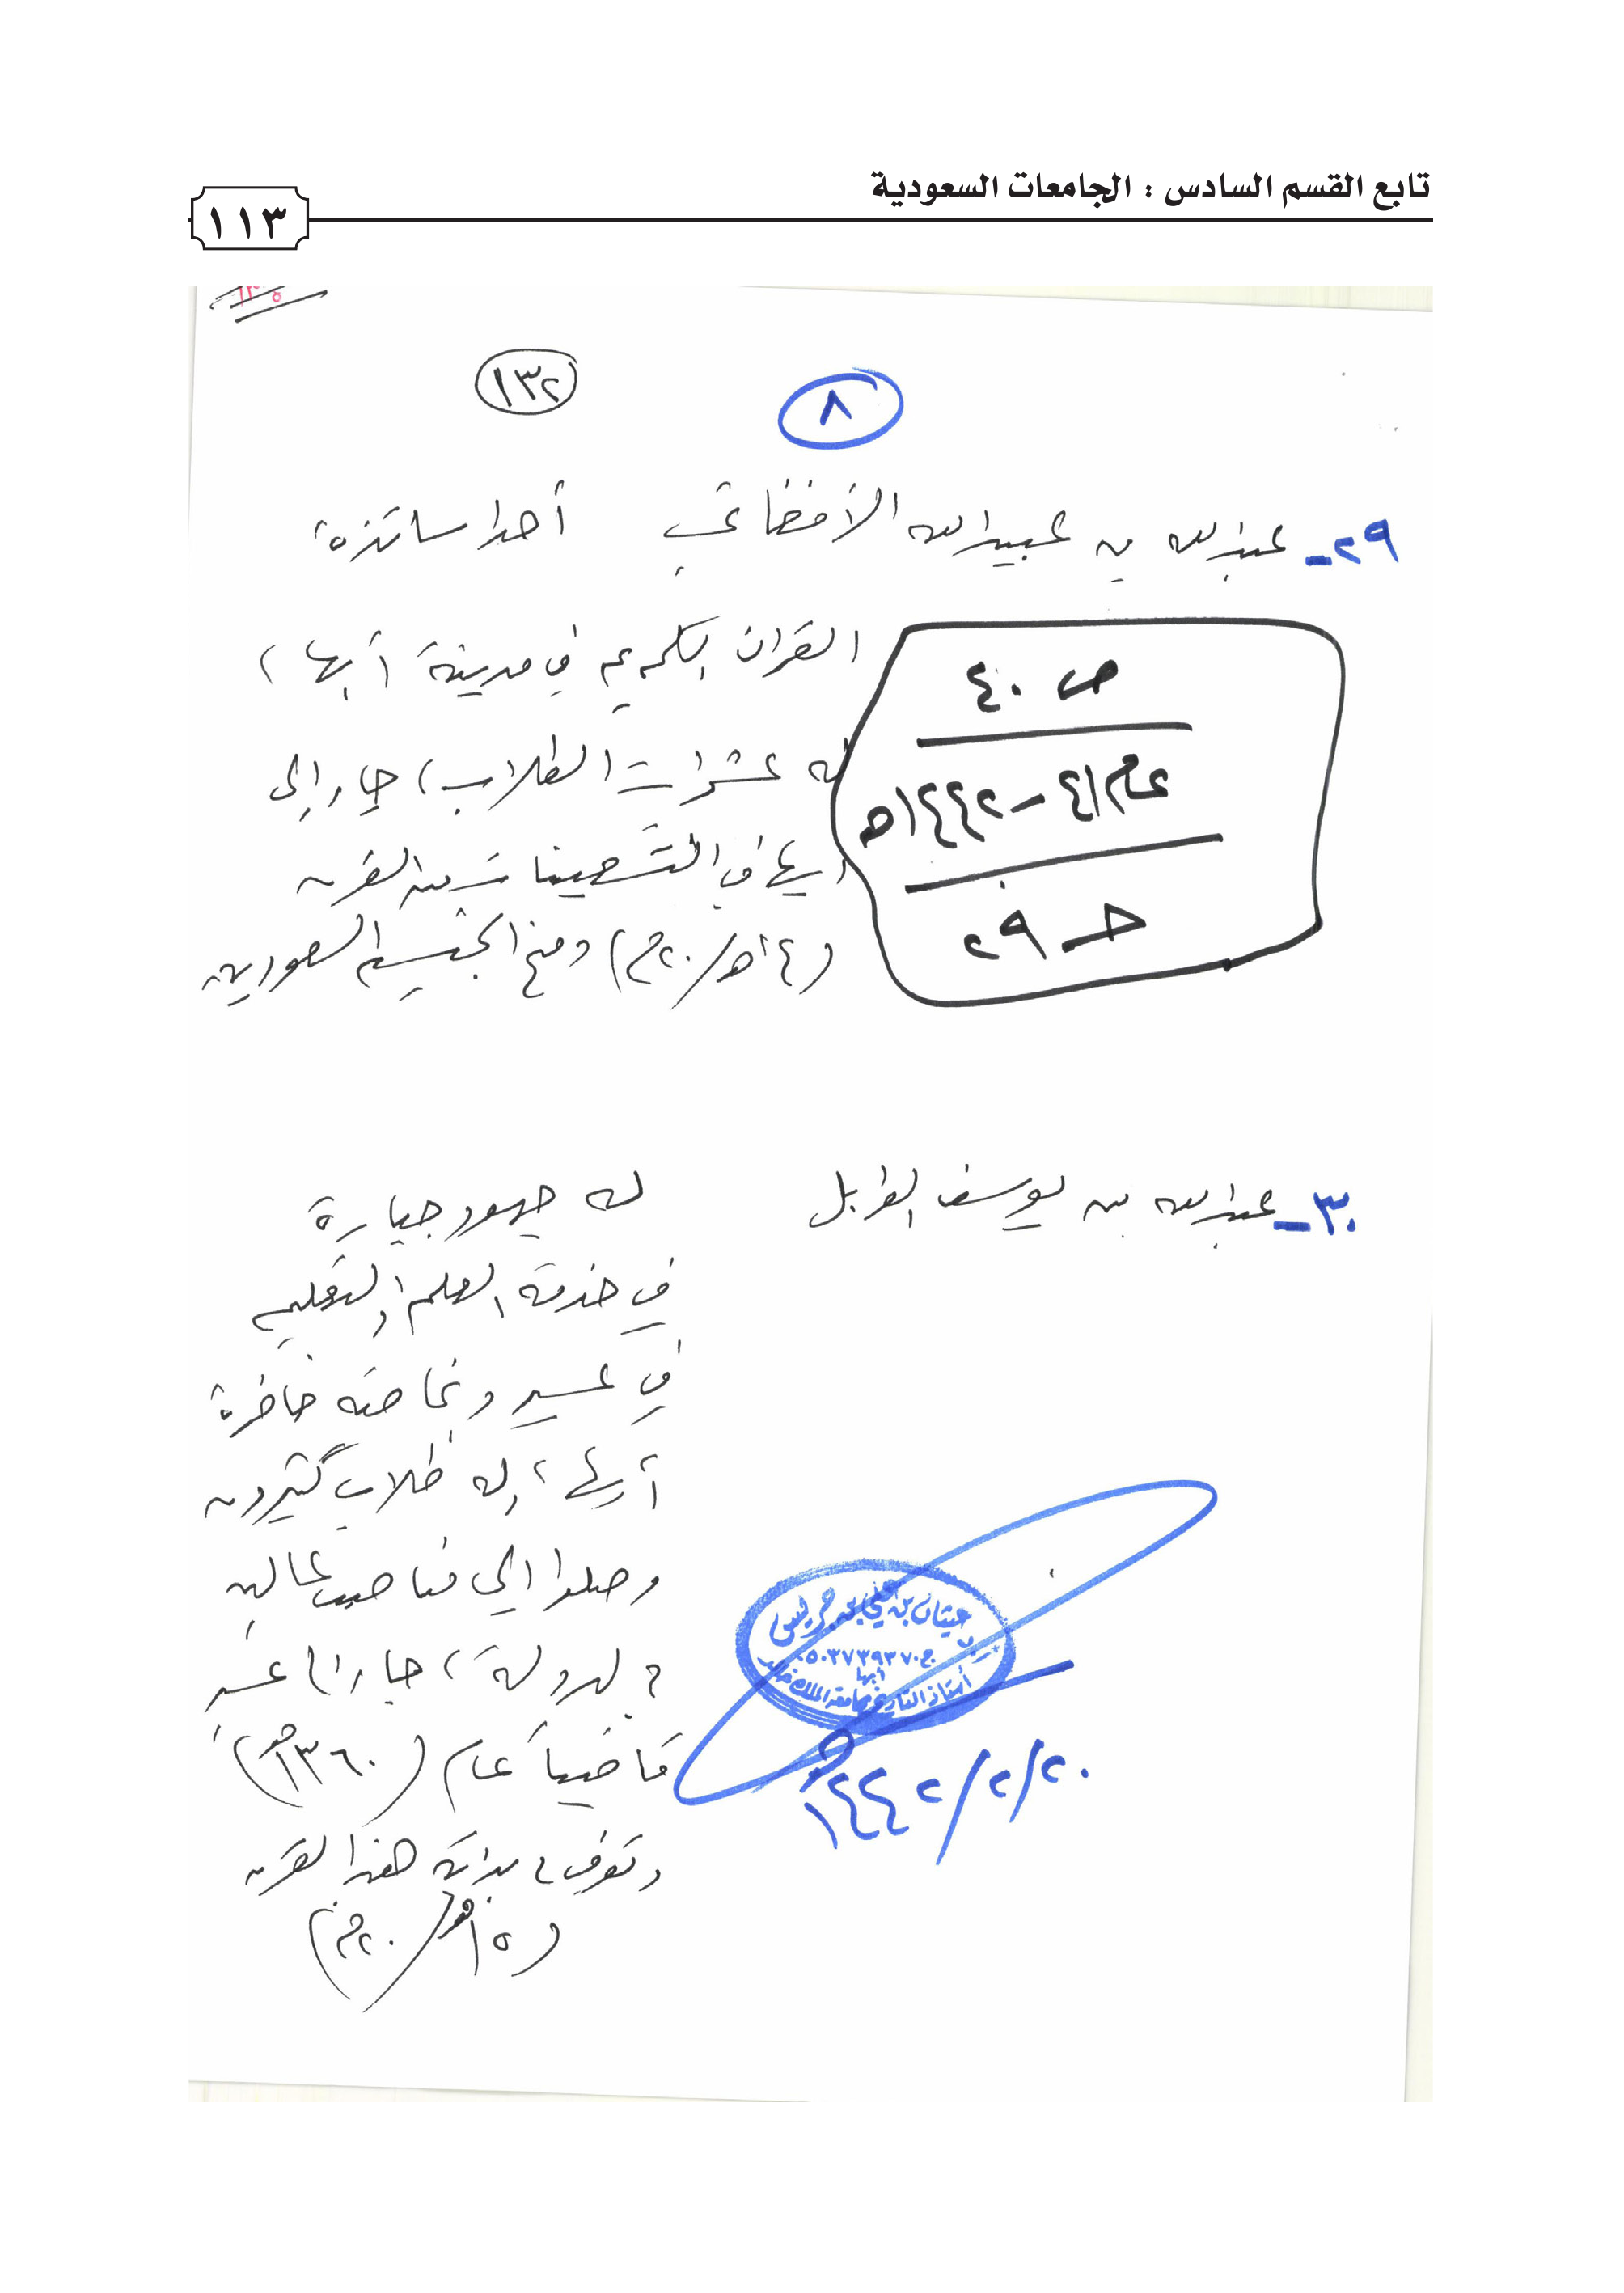 تابع القسم السادس : الجامعات السعودية
١١٣
١٣٢
٨
٢٩- عبدالله بن عبيدالله الأفغاني أحد اساتذة
القران الكريم في مدينة أبها ،
له عشرات الطلاب ، جاء إلى
ابها في التسعينات من القرن
(١٤هـ/٢٠م) ومنح الجنسية السعودية
ص ٤٠
عام ٤١ - ١٤٤٢هـ
حـ ٢٩
٣٠- عبدالله بن يوسف الوابل له جهود جبارة
في خدمة العلم والتعليم
في عسير وبخاصة حاضرة
أبها ، له طلاب كثيرون
وصلوا الى مناصب عالية
في الدولة ، جاء الى عسير
قاضياً عام (١٣٦٠هـ)
وتوفي في بداية هذا القرن
(١٥هـ/٢٠م)
غيثان بن علي بن جريس
ج ٠٥٠٣٧٣٩٣٧٠
أبها
أستاذ التاريخ بجامعة الملك خالد
٢٠/٢/١٤٤٢هـ